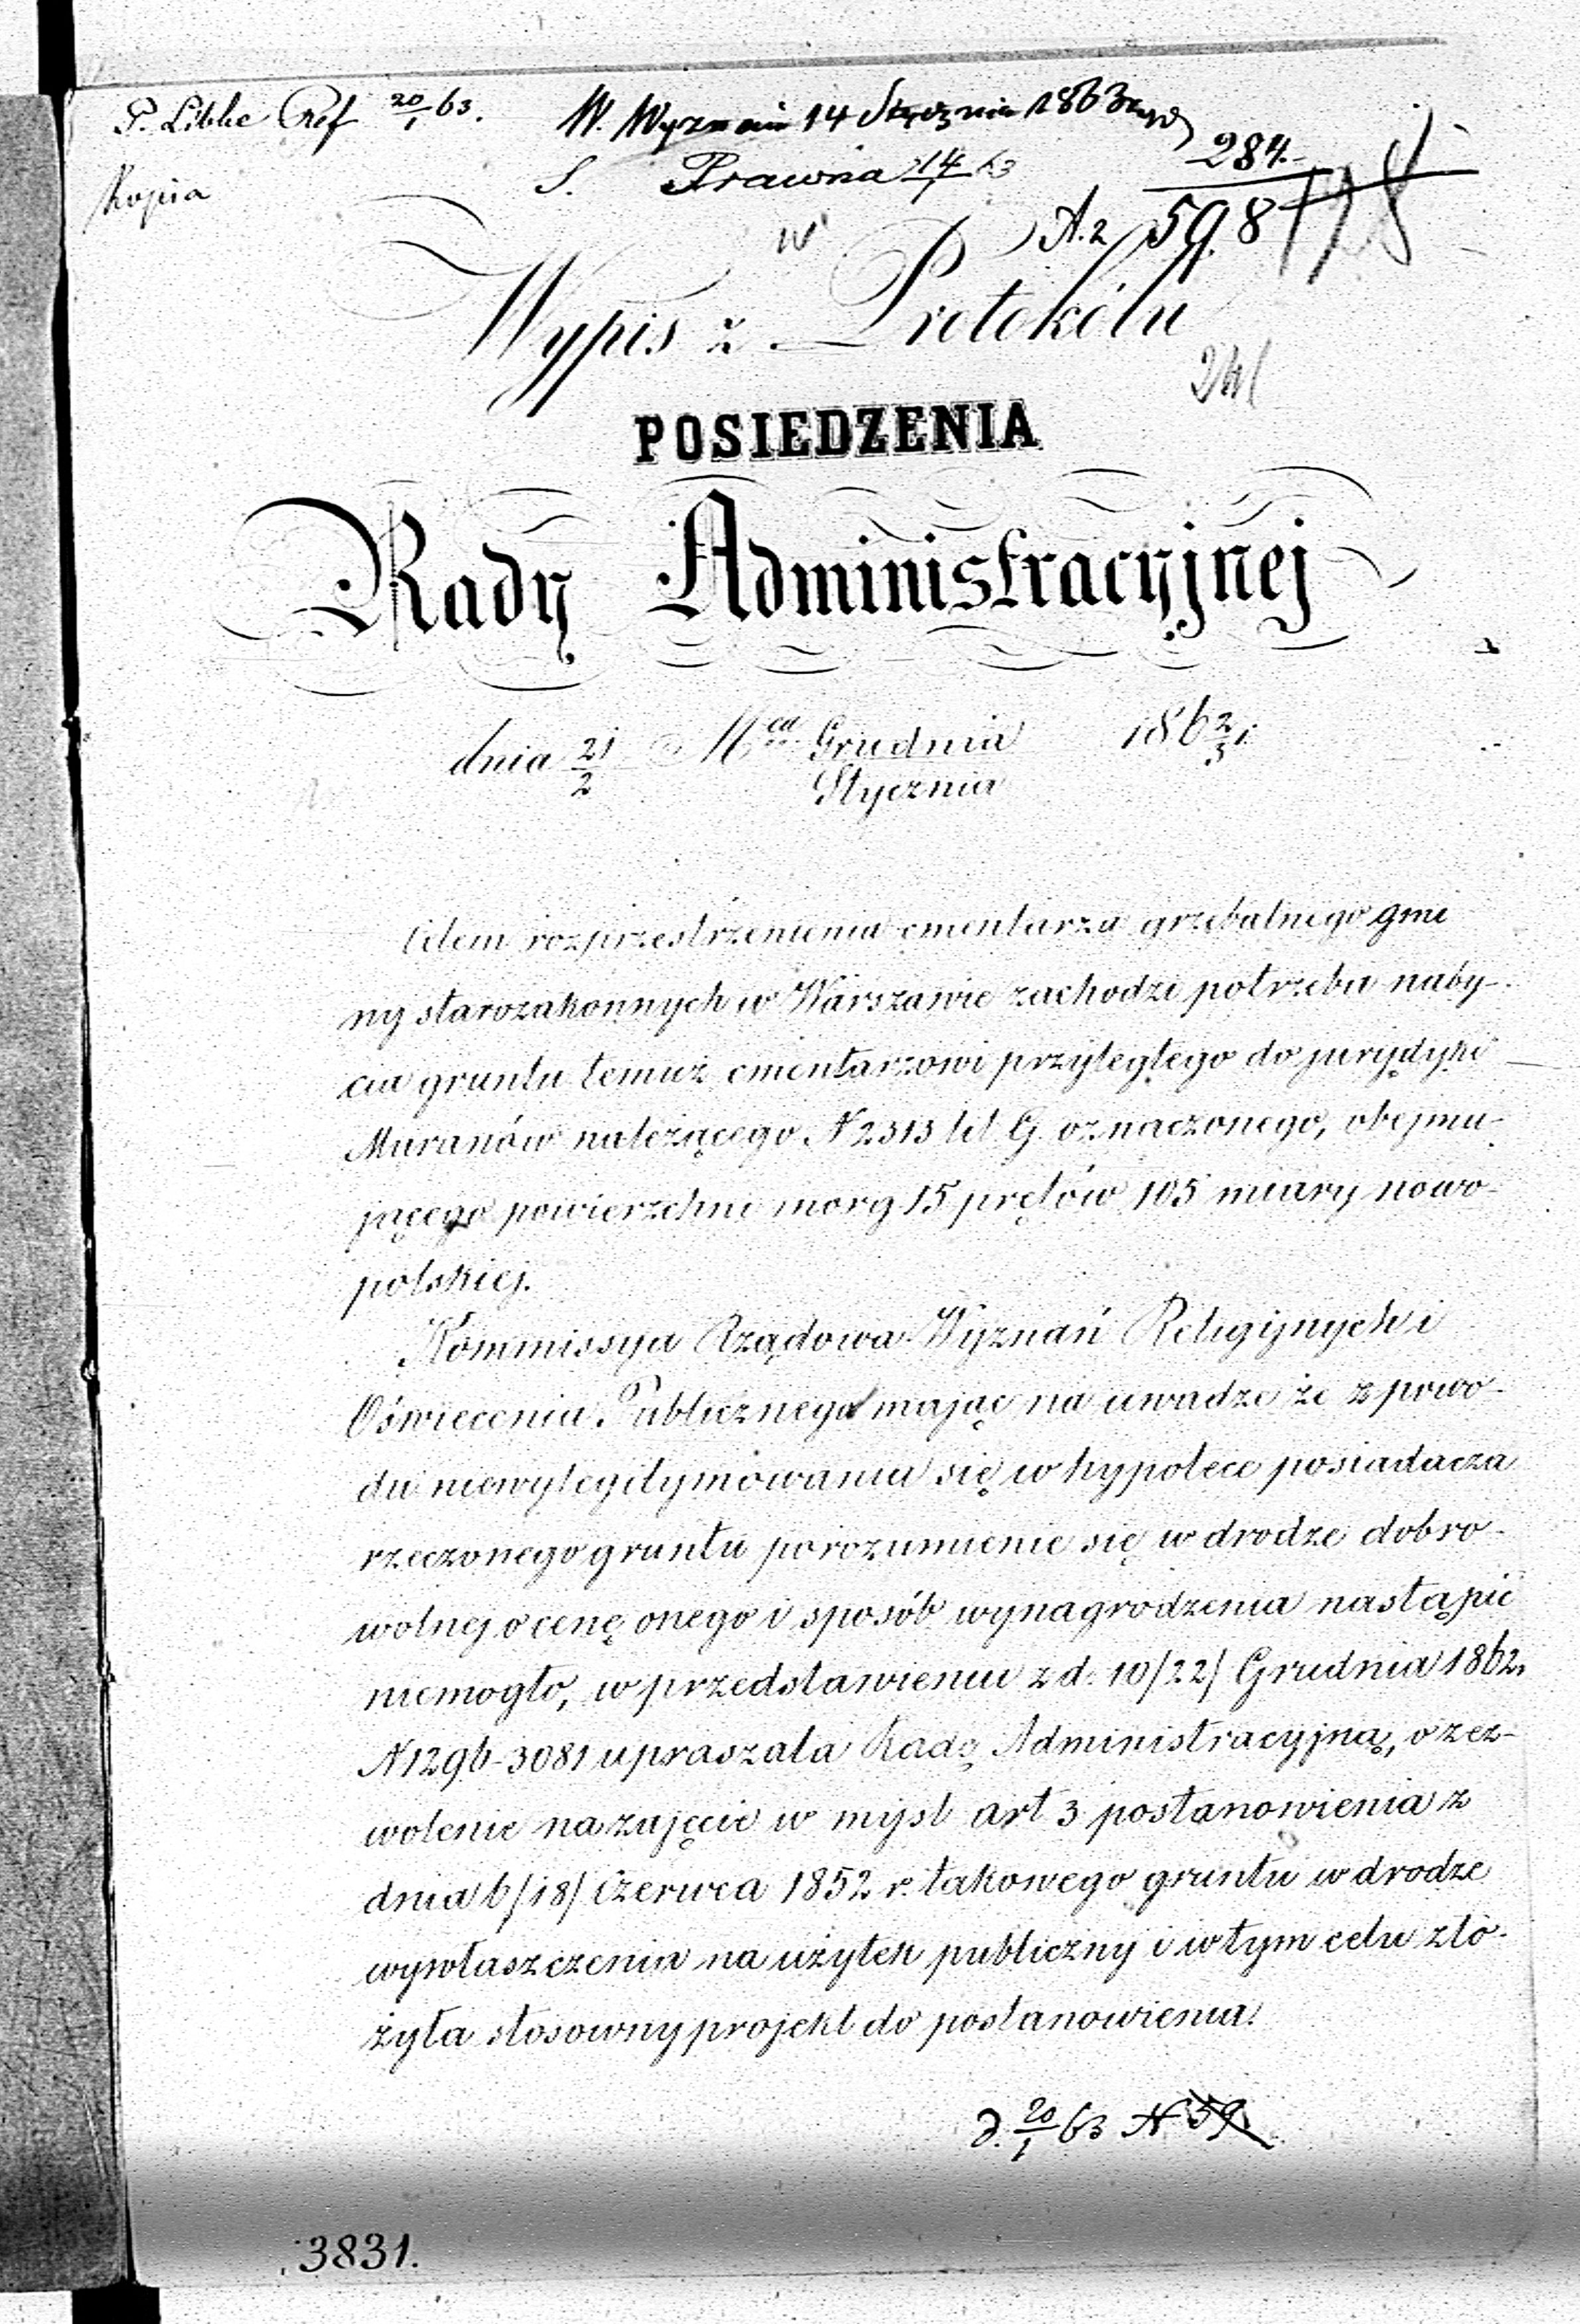 P. Libke Ref 20/1 63.
W. Wyznań 14 Stycznia 1863
284.
Kopia
S. Prawna 14/1 63
A. 2 598
Wypis z Protokółu
POSIEDZENIA
Rady Administracyjnej
dnia 21/2 Mca Grudnia/Stycznia 1862/3 r.
Celem rozprzestrzenienia cmentarza grzebalnego gmi
ny starozakonnych w Warszawie zachodzi potrzeba naby-
cia gruntu temuż cmentarzowi przyległego do jurydyki
Muranów należącego N 2313 lit G oznaczonego, obejmu-
jącego powierzchni morg 15 prętów 105 miary nowo-
polskiej.
Kommissya Rządowa Wyznań Religijnych i
Oświecenia Publicznego mając na uwadze że z powo-
du niewylegitymowania się w hypotece posiadacza
rzeczonego gruntu porozumienie się w drodze dobro-
wolnej o cenę onego i sposób wynagrodzenia nastąpić
niemogło, w przedstawieniu z d. 10/22/ Grudnia 1862.
N 1296-3081 upraszała Radę Administracyjną, o zez-
wolenie na zajęcie w myśl art 3 postanowienia z
dnia 6/18/ Czerwca 1852 r. takowego gruntu w drodze
wywłaszczenia na użytek publiczny i w tym celu zło-
żyła stosowny projekt do postanowienia.
d. 20/1 63 N 59.
3831.